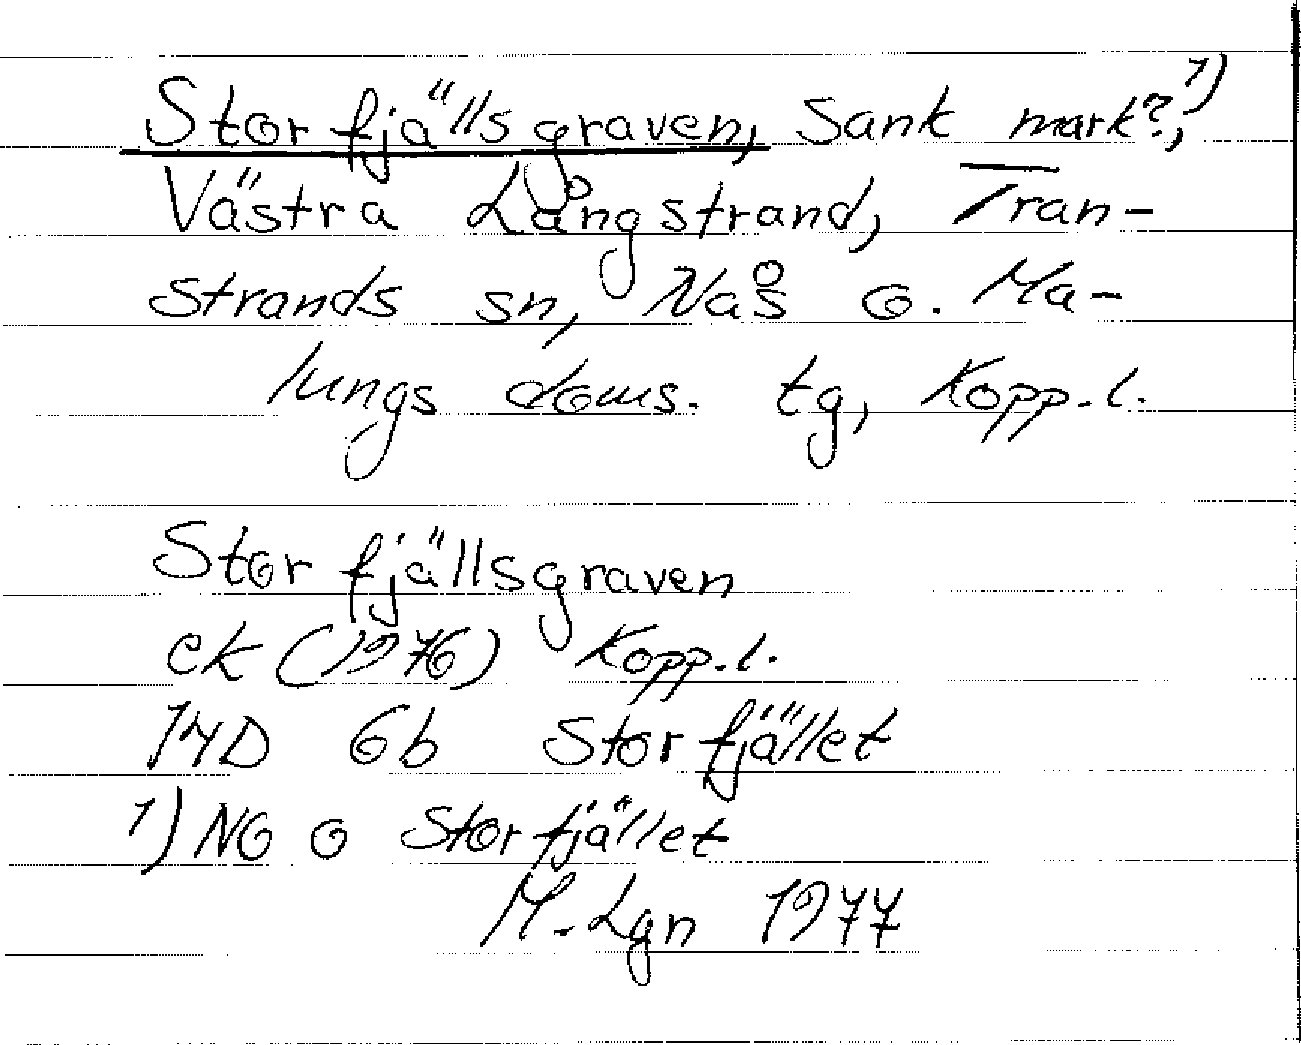 Storfjällsgraven, Sank mark?,1)
Västra Långstrand, Tran-
strands sn, Nås o. Ma-
lungs doms. tg, Kopp. l.
Storfjällsgraven
ek (1976) Kopp. l.
14D 6b Storfjället
1) NO o Storfjället
M. Lgn 1977